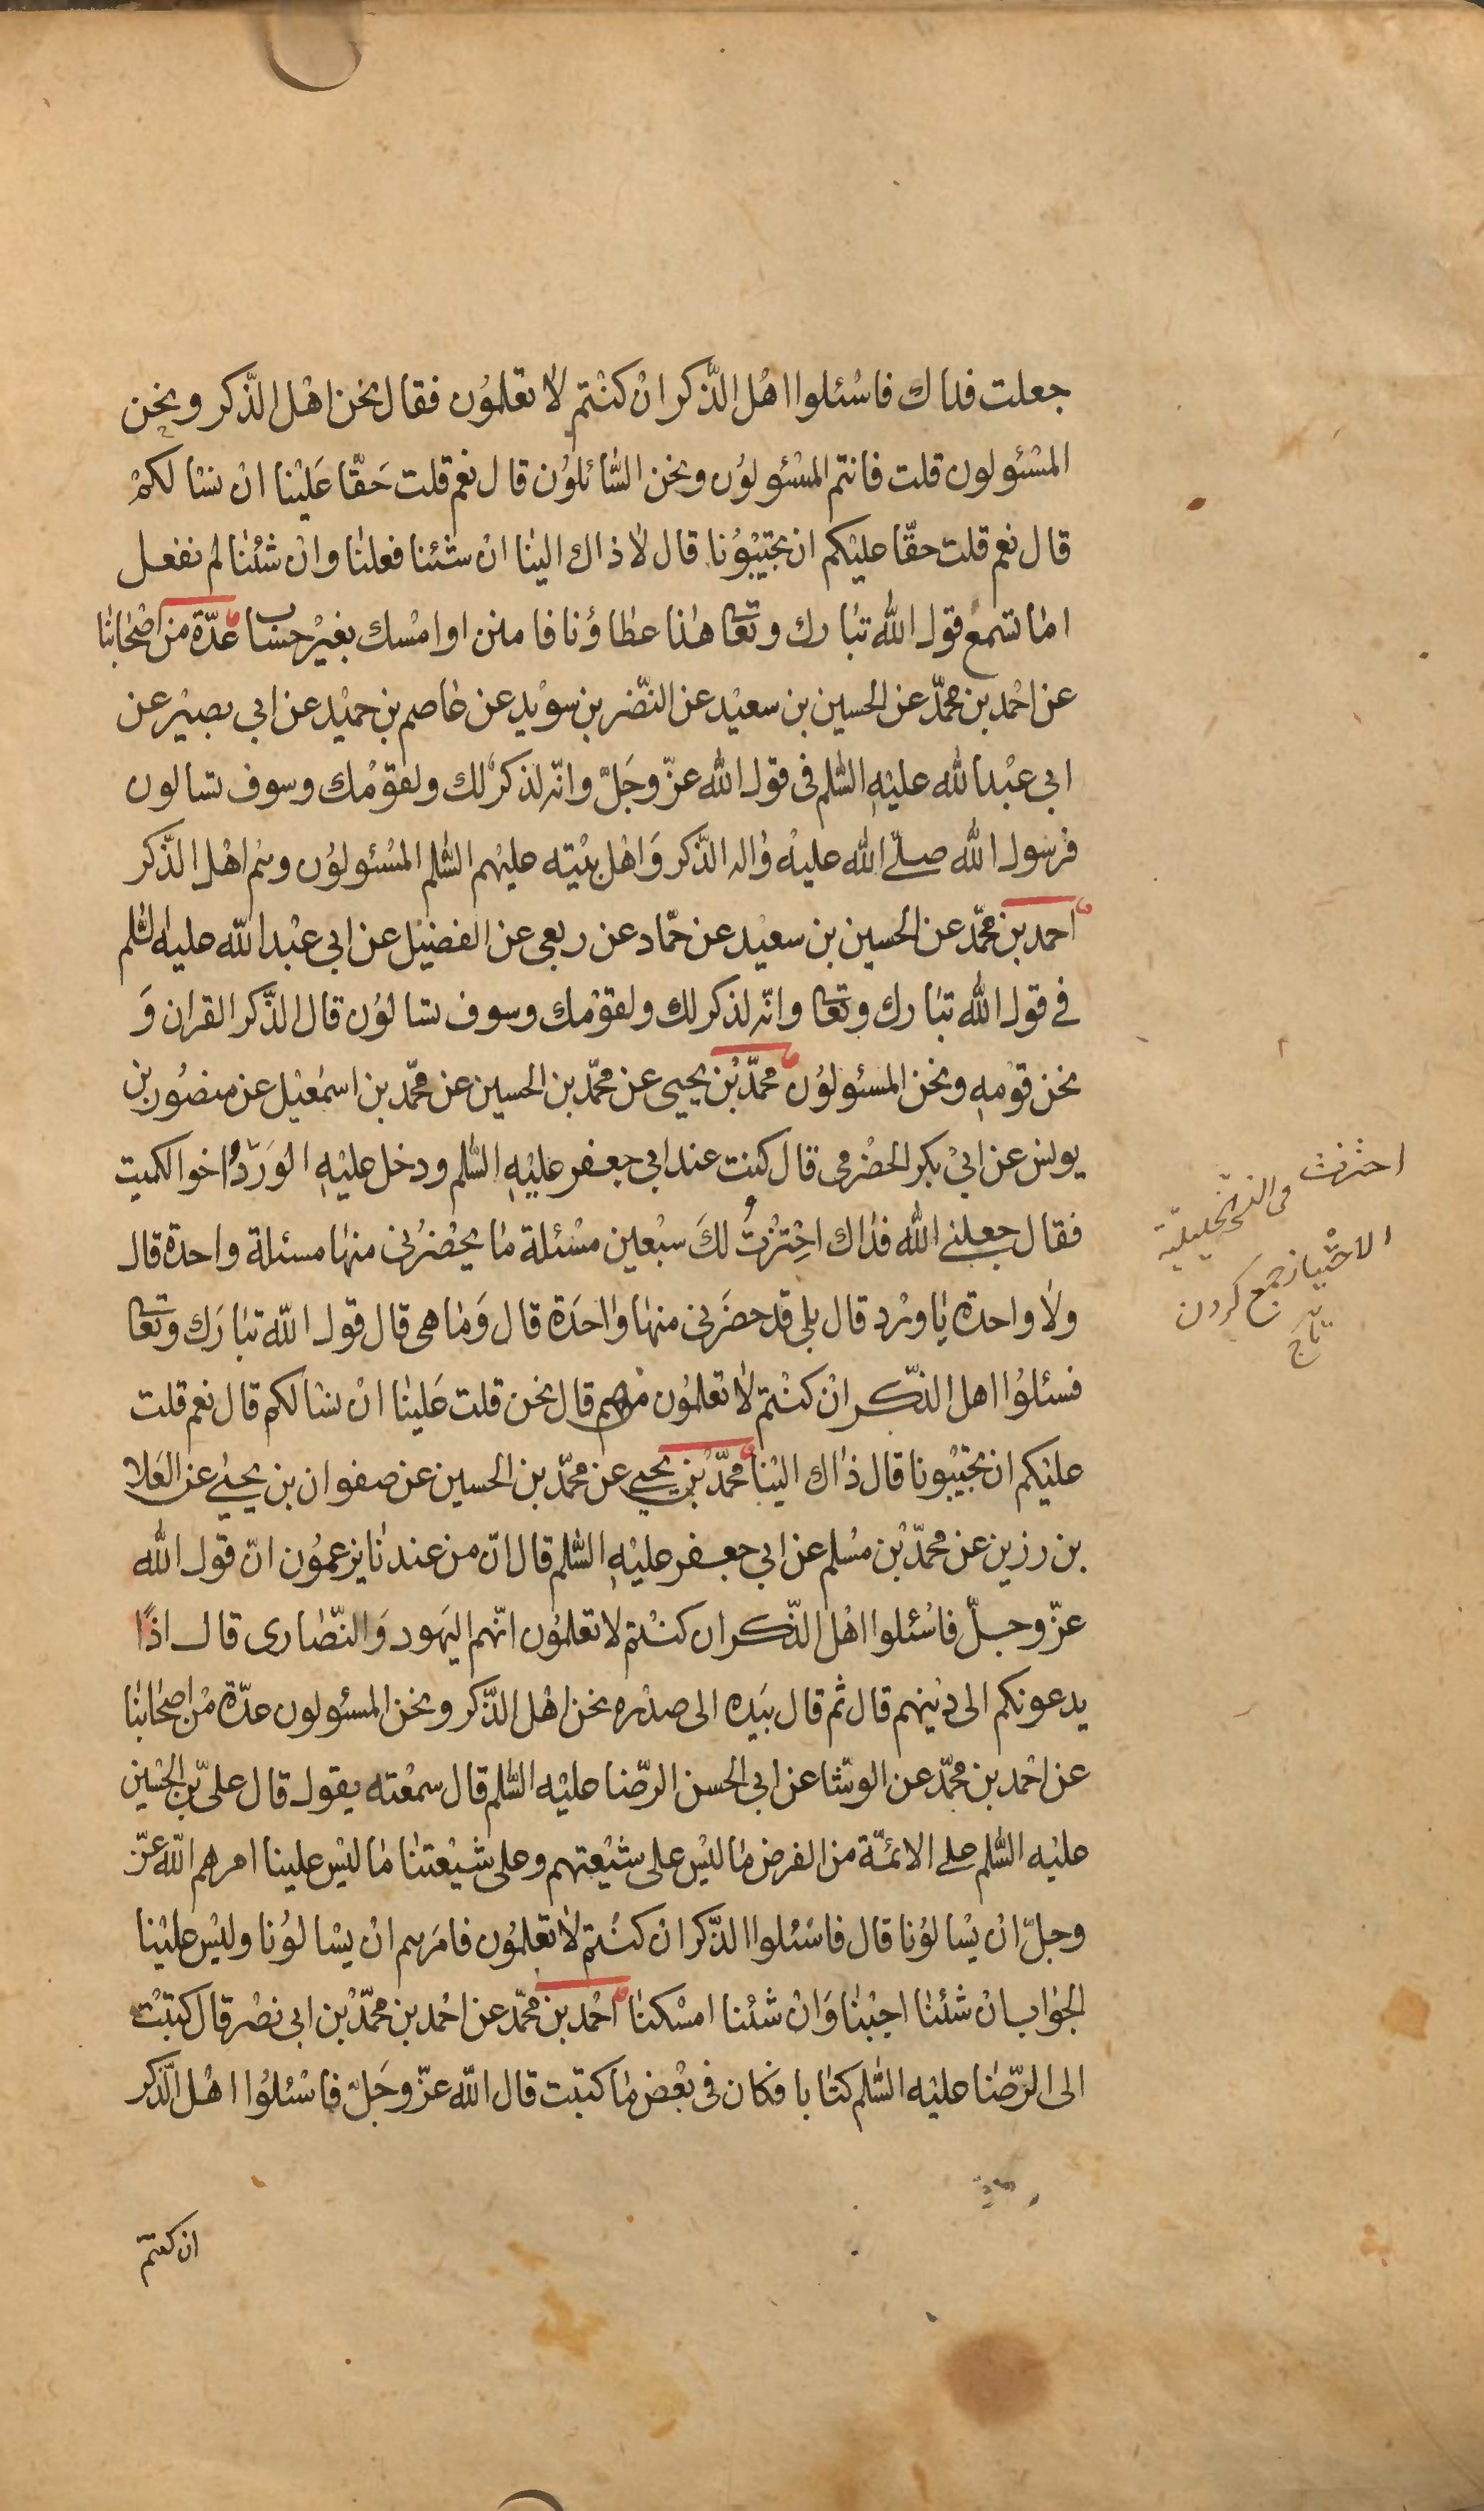 جعلت فداك فاسْئلوا اهْل الذّكر انْ كنْتم لا تعْلموُن فقال نحْن اهْل الذّكر ونحن
المسْئولون قلت فانتم المسْئولوُن ونحن السّائلوُن قال نعم قلت حَقّا عَليْنا انْ نسْالكمْ
قال نعم قلت حقّا عليْكم ان تجيْبوُنا قال لا ذاك الينا انْ شئنا فعلنا وانْ شئْنا لم نفعل
اما تسمع قول الله تبارك وتعا هذا عطاؤنا فامنن او امْسك بغيْر حساب عدّة من اصْحابنا
عن احْمد بن محمّد عن الحسين بن سعيْد عن النّضر بن سوْيد عن عاصم بن حميْد عن ابي بصيْر عن
ابي عبْد الله عليْهِ السّلم فى قول الله عزّ وجَلّ وانّه لذكرٌ لك ولقوْمك وسوف تسالون
فرسول الله صلّى الله عليْه واله الذّكر وَاهْل بيْته عليْهم السّلم المسْئولوُن وهم اهْل الذّكر
احمد بن محمّد عن الحسين بن سعيْد عن حمّاد عن ربعى عن الفضيْل عن ابي عبْد الله عليه السّلم
فى قول الله تبارك وتعا وانّه لذكر لك ولقوْمك وسوف تسالوُن قال الذّكر القران وَ
نحن قوْمهِ ونحن المسئولوُن محمّد بْن يحيى عن محمّد بن الحسين عن محمّد بن اسمعيْل عن منصوُر بن
يونس عن ابيْ بكر الحضْرمى قال كنت عند ابي جعفر عليْهِ السّلم ودخل عليْهِ الوَرْدُ اخو الكميت
فقال جعلنى الله فداك احْتزْتُ لكَ سبْعين مسْئلة ما يحْضرْنى منها مسئلة واحدة قال
ولا واحدة يا ورْد قال بلى قد حضَرنى منها واحَدة قال وَما هى قال قول الله تبارَك وتعا
فسئلوُا اهل الذّكر انْ كنْتم لا تعْلموُن من هم قال نحن قلت عَلينا انْ نسْالكم قال نعم قلت
عليْكم ان تجيْبونا قال ذاك اليْنا محمّد بْن يحيى عن محمّد بن الحسين عن صفوان بن يحيى عن العَلا
بن رزين عن محمّد بْن مسْلم عن ابي جعفر عليْهِ السّلم قال انّ من عندنا يزعموُن انّ قول الله
عزّ وجلّ فاسْئلوا اهْل الذّكر ان كنْتم لا تعلموُن انّهم اليَهود وَالنّصارى قال اذًا
يدعونكم الى ديْنهم قال ثم قال بيَده الى صدْره نحن اهْل الذّكر ونحن المسئولون عدّة منْ اصحابنا
عن احْمد بن محمّد عن الوشّا عن ابي الحسن الرّضا عليْه السّلم قال سمعْته يقول قال علىّ بن الحسْين
عليْه السّلم على الائمّة من الفرض ما ليْس على شيْعتهم وعلى شيْعتنا ما ليْس علينا امرهم الله عزّ
وجلّ انْ يسْالوُنا قال فاسْئلوا الذّكر ان كنْتم لا تعْلموُن فامرَهم انْ يسْالوُنا وليْس عليْنا
الجواب انْ شئنا اجبْنا وَانْ شئْنا امسْكنا احْمد بن محمّد عن احْمد بن محمّد بْن ابي نصْر قال كتبْت
الى الرّضا عليْه السّلم كتابا فكان فى بعْض ما كتبت قال الله عزّ وجَلّ فاسْئلوُا اهْل الذّكر
ان كنتم
احتزت
الاحتياز جمع كردن
تاج